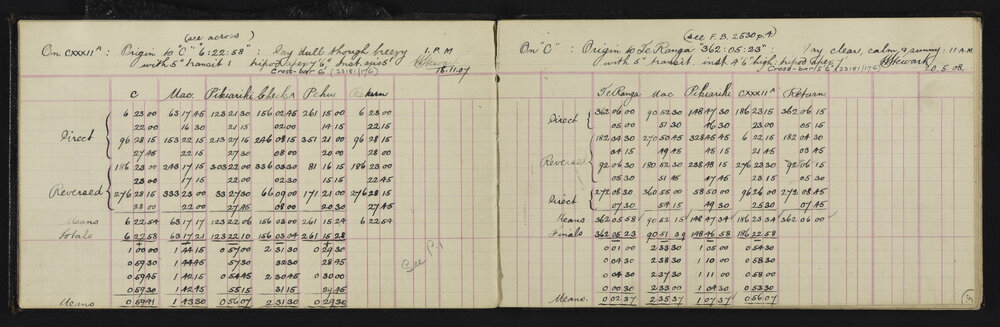 (see across)
On CXXXII^A : Origin to "C" "6:22:58" : day dull though breezy 1. P.M
with 5" transit : tripod apex 7'6" Inst. 4'05"
Cross-bar 6' (22181/176) 18.11.07
C Mac. Pikiariki Check A Pehu Return
6 23 00 63 17 45 123 21 30 156 02 45 261 15 00 6 23 00
Direct 22 00 16 30 21 15 02 00 14 15 22 15
96 28 15 153 22 15 213 27 15 246 08 15 351 21 00 96 28 15
27 45 22 15 27 30 08 00 20 00 28 00
186 23 00 243 17 15 303 22 00 336 03 30 81 16 15 186 23 00
23 00 17 15 22 00 02 30 15 15 22 45
Reversed 276 28 15 333 23 00 33 27 30 66 09 00 171 21 00 276 28 15
28 00 22 00 27 45 08 00 20 30 27 45
Means 6 22 54 63 17 17 123 22 06 156 03 00 261 15 24 6 22 54
Totals 6 22 58 63 17 21 123 22 10 156 03 04 261 15 28
1 00 00 1 44 15 0 57 00 2 31 30 0 29 30
0 59 30 1 44 45 57 30 32 30 28 45
0 59 45 1 42 15 0 54 45 2 30 45 0 30 00
0 59 30 1 42 45 55 15 31 15 29 45
Means 0 59 41 1 43 30 0 56 07 2 31 30 0 29 30
See P.1
(see F.B. 2530 p.4)
On "C" : Origin to Te Ranga "362:05:23" : day clear, calm, & sunny : 11 A.M.
with 5" transit. inst 4'6" high, tripod apex 7'
Cross-bar 5'6" (22181/176) 20.5.08.
Te Ranga Mac Pikiariki CXXXII^A Return
362 06 00 90 52 30 148 47 30 186 23 15 362 06 15
Direct 05 00 51 30 46 30 23 00 05 15
182 04 30 270 50 45 328 45 45 6 22 15 182 04 30
04 15 49 45 45 15 21 45 03 45
Reversed 92 06 30 180 52 30 238 48 15 276 23 30 92 06 15
05 30 51 45 47 45 23 15 05 30
Direct 272 08 30 360 55 00 58 50 00 96 26 00 272 08 45
07 30 54 15 49 30 25 30 07 45
Means 362 05 58 90 52 15 148 47 34 186 23 34 362 06 00
Finals 362 05 23 90 51 39 148 46 58 186 22 58
0 01 00 2 33 30 1 05 00 0 54 30
0 04 30 2 38 30 1 10 00 0 58 30
0 04 30 2 37 30 1 11 00 0 58 00
0 00 30 2 33 00 1 04 30 0 53 30
Means. 0 02 37 2 35 37 1 07 37 0 56 07